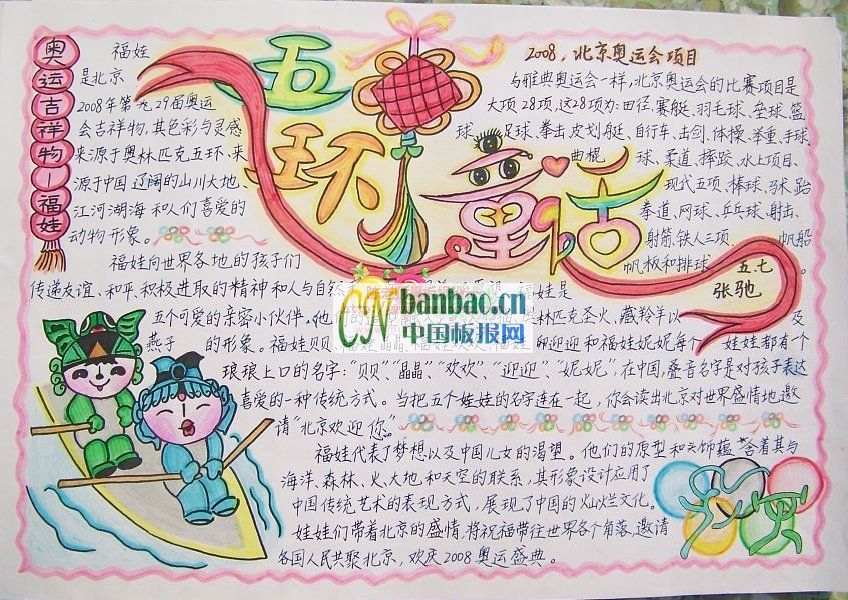 奥运吉祥物—福娃
五环童话
福娃
是北京
2008年第29届奥运
会吉祥物,其色彩与灵感
来源于奥林匹克五环、来
源于中国辽阔的山川大地、
江河湖海和人们喜爱的
动物形象。
福娃向世界各地的孩子们
传递友谊、和平、积极进取的精神和人与自然
娃是
五个可爱的亲密小伙伴,他
林匹克圣火、藏羚羊以及
燕子的形象。福娃贝
卵迎迎和福娃妮妮每个娃娃都有个
琅琅上口的名字:“贝贝”、“晶晶”、“欢欢”、“迎迎”、“妮妮”,在中国,叠音名字是对孩子表达
喜爱的一种传统方式。当把五个娃娃的名字连在一起,你会读出北京对世界盛情地邀
请“北京欢迎您”。
福娃代表了梦想以及中国儿女的渴望。他们的原型和头饰蕴含着其与
海洋、森林、火、大地、和天空的联系,其形象设计应用了
中国传统艺术的表现方式,展现了中国的灿烂文化。
娃娃们带着北京的盛情,将祝福带往世界各个角落,邀请
各国人民共聚北京,欢庆2008奥运盛典。
2008,北京奥运会项目
与雅典奥运会一样,北京奥运会的比赛项目是
大项28项,这28项为:田径、赛艇、羽毛球、垒球、篮
球、足球、拳击、皮划艇、自行车、击剑、体操、举重、手球、
曲棍球、柔道、摔跤、水上项目、
现代五项、棒球、马术、跆
拳道、网球、乒乓球、射击、
射箭、铁人三项、帆船
帆板和排球。
五.七
张驰
CNbanbao.cn
中国板报网